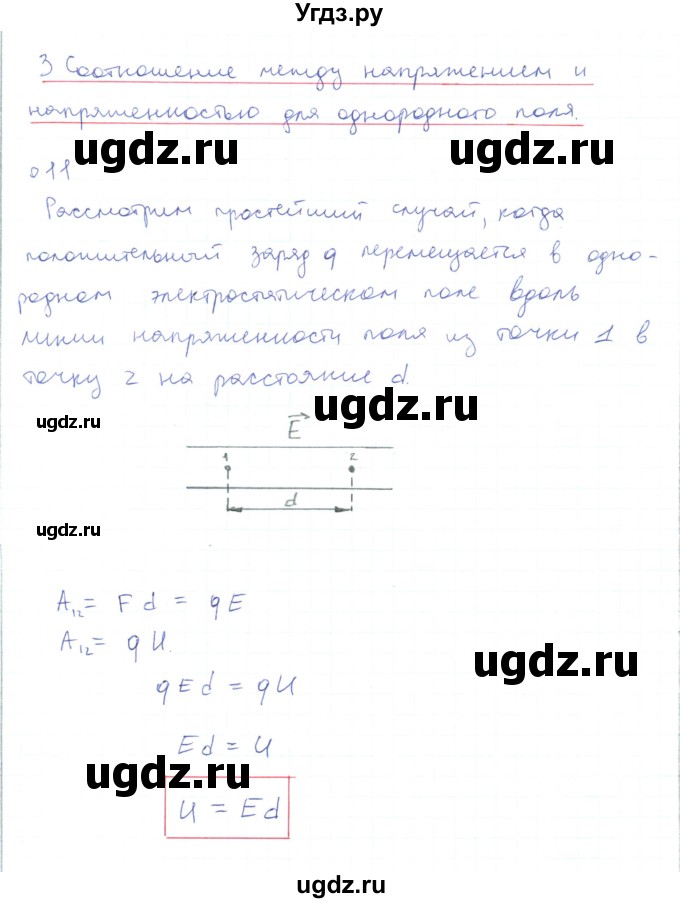 Угдз.ру
3 Соотношение между напряжением и
напряженностью для однородного поля.
ugdz.ru ugdz.ru
011
Рассмотрим простейший случай, когда
положительный заряд q перемещается в одно-
родном электростатическом поле вдоль
линии напряженности поля из точки 1 в
точку 2 на расстояние d.
ugdz.ru
ugdz.ru
E
1 2
d
ugdz.ru
A₁₂ = Fd = qE
A₁₂ = qU.
ugdz.ru
qEd = qU
Ed = U
ugdz.ru
U = Ed
ugdz.ru